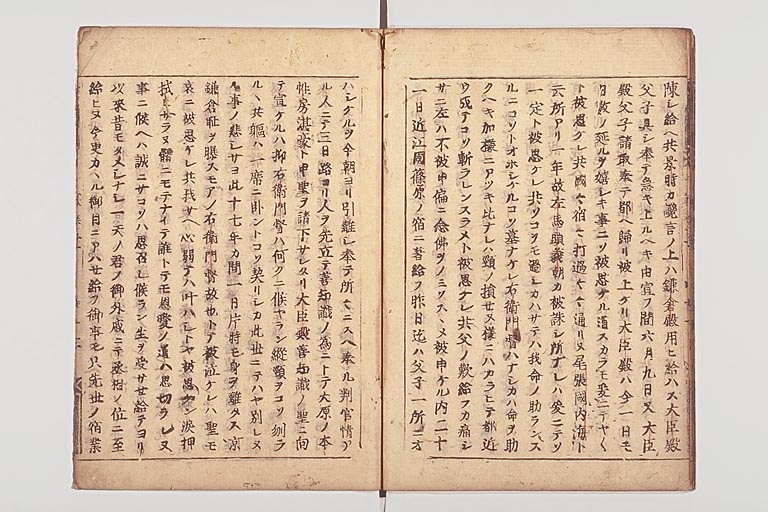 陳シ給ヘ共景時カ讒言ノ上ハ鎌倉殿用ヒ給ハス大臣殿
父子具シ奉テ急キ上ルヘキ由宣フ間六月九日又大臣
殿父子請取奉テ都ヘ歸リ被上ケリ大臣殿ハ今一日モ
日数ノ延ルヲ嬉シキ事ニソ被思ケル道スカラモ爰ニテヤ
ト被思ケレ共國々宿々打過々々通リヌ尾張國内海ト
云所アリ一年故左馬頭義朝カ被誅シ所ナレハ爰ニテソ
一定ト被思ケレ共ソコヲモ過シカハサテハ我命ノ助ランス
ルニコソトオホシケルコソ墓ナケレ右衛門督ハナシカハ命ヲ助
クヘキ加様ニアツキ比ナレハ頸ノ損セヌ様ニハカラヒテ都近
ウ成テコソ斬ランスラメト被思ケレ共父ノ歎給フカ痛シ
サニ左ハ不被申偏ニ念佛ヲノミソスヽメ被申ケル内二十
一日近江國篠原ノ宿ニ著給フ昨日迄ハ父子一所ニオ
ハシケルヲ今朝ヨリ引離シ奉テ所々ニスヘ奉ル判官情アル
人ニテ三日路ヨリ人ヲ先立テ善知識ノ為ニトテ大原ノ本
性房湛豪ト申聖ヲ請下サレタリ大臣殿善知識ノ聖ニ向
テ宣ケルハ抑右衛門督ハ何クニ候ヤラン縦頸ヲコソ刎ラ
ルヽ共軀ハ一席ニ卧ントコソ契リシカ此世ニテハヤ別レヌ
ル事ノ悲シサヨ此十七年カ間一日片時モ身ヲ離タス京
鎌倉耻ヲ曝スモアノ右衛門督故也トテ被泣ケレハ聖モ
哀ニ被思ケレ共我サヘ心弱テハ叶ハシトヤ被思ケン涙押
拭ヒサラヌ體ニモテナイテ誰トテモ恩愛ノ道ハ思切ラレヌ
事ニ候ヘハ誠ニサコソハ思召レ候ラン生ヲ受サセ給テヨリ
以來昔モタメシナシ一天ノ君ノ御外戚ニテ丞相ノ位ニ至
給ヒヌ今更カヽル御目ニアハせ給フ御事モ只先世ノ宿業